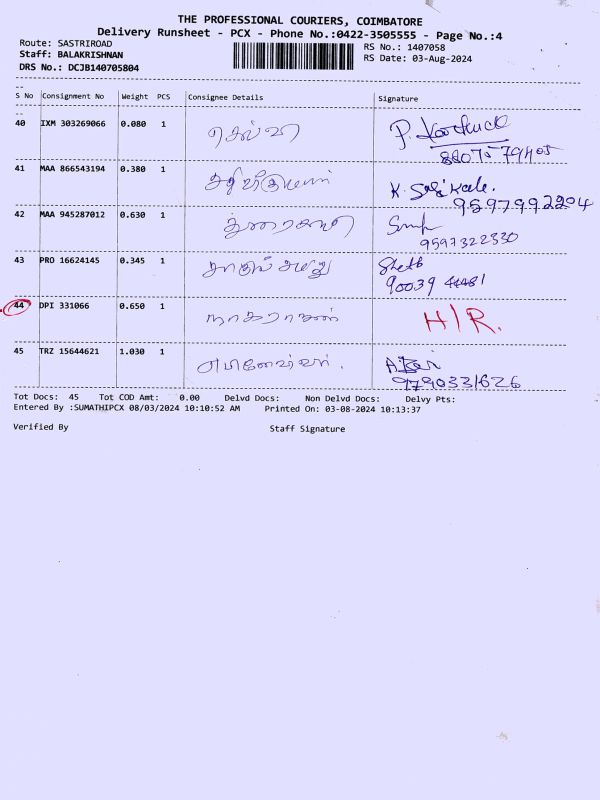 THE PROFESSIONAL COURIERS, COIMBATORE
Delivery Runsheet - PCX - Phone No.:0422-3505555 - Page No.:4
Route: SASTRIROAD
RS No.: 1407058
Staff: BALAKRISHNAN
RS Date: 03-Aug-2024
DRS No.: DCJB140705804
S No Consignment No Weight PCS Consignee Details Signature
40 IXM 303269066 0.080 1 செல்வி
41 MAA 866543194 0.380 1
K.
9597992204
42 MAA 945287012 0.630 1 துரைசாமி
9597322330
43 PRO 16624145 0.345 1
90039 44481
44 DPI 331066 0.650 1 நாகராகன் H/R.
45 TRZ 15644621 1.030 1
9790331626
Tot Docs: 45 Tot COD Amt: 0.00 Delvd Docs: Non Delvd Docs: Delvy Pts:
Entered By :SUMATHIPCX 08/03/2024 10:10:52 AM Printed On: 03-08-2024 10:13:37
Verified By Staff Signature